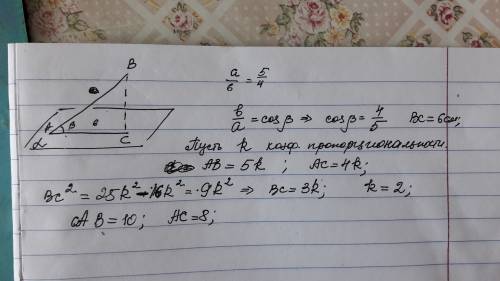 B
a/б = 5/4
A β б
α C
б/a = cosβ ⇒ cosβ = 4/5 BC = 6см;
Пусть k коэф. пропорциональности.
AB = 5k ; AC = 4k;
BC² = 25k² - 16k² = 9k² ⇒ BC = 3k; k = 2;
AB = 10; AC = 8;